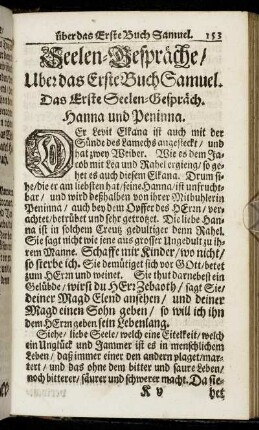 über das Erste Buch Samuel. 153
Seelen-Gespräche/
Uber das Erste Buch Samuel.
Das Erste Seelen-Gespräch.
Hanna und Peninna.
DEr Levit Elkana ist auch mit der
Sünde des Lamechs angesteckt/ und
hat zwey Weiber. Wie es dem Ja-
cob mit Lea und Rahel ergieng/ so ge-
het es auch diesem Elkana. Drum si-
he/ die er am liebsten hat/ seine Hanna/ ist unfrucht-
bar/ und wird deßhalben von ihrer Mitbuhlerin
Peninna/ auch bey dem Opffer des HErrn/ ver-
achtet/ betrübt und sehr getrotzt. Die liebe Han-
na ist in solchem Creutz gedultiger denn Rahel.
Sie sagt nicht wie jene aus grosser Ungedult zu ih-
rem Manne. Schaffe mir Kinder/ wo nicht/
so sterbe ich. Sie demütiget sich vor Gott/ betet
zum HErrn und weinet. Sie thut darnebest ein
Gelübde/ wirst du HErr Zebaoth/ sagt Sie/
deiner Magd Elend ansehen/ und deiner
Magd einen Sohn geben/ so will ich ihn
dem HErrn geben sein Lebenlang.
Siehe/ liebe Seele/ welch eine Eitelkeit/ welch
ein Unglück und Jammer ist es in menschlichem
Leben/ daß immer einer den andern plaget/ mar-
tert/ und das ohne dem bitter und saure Leben/
noch bitterer/ säurer und schwerer macht. Da sie-
K v
het